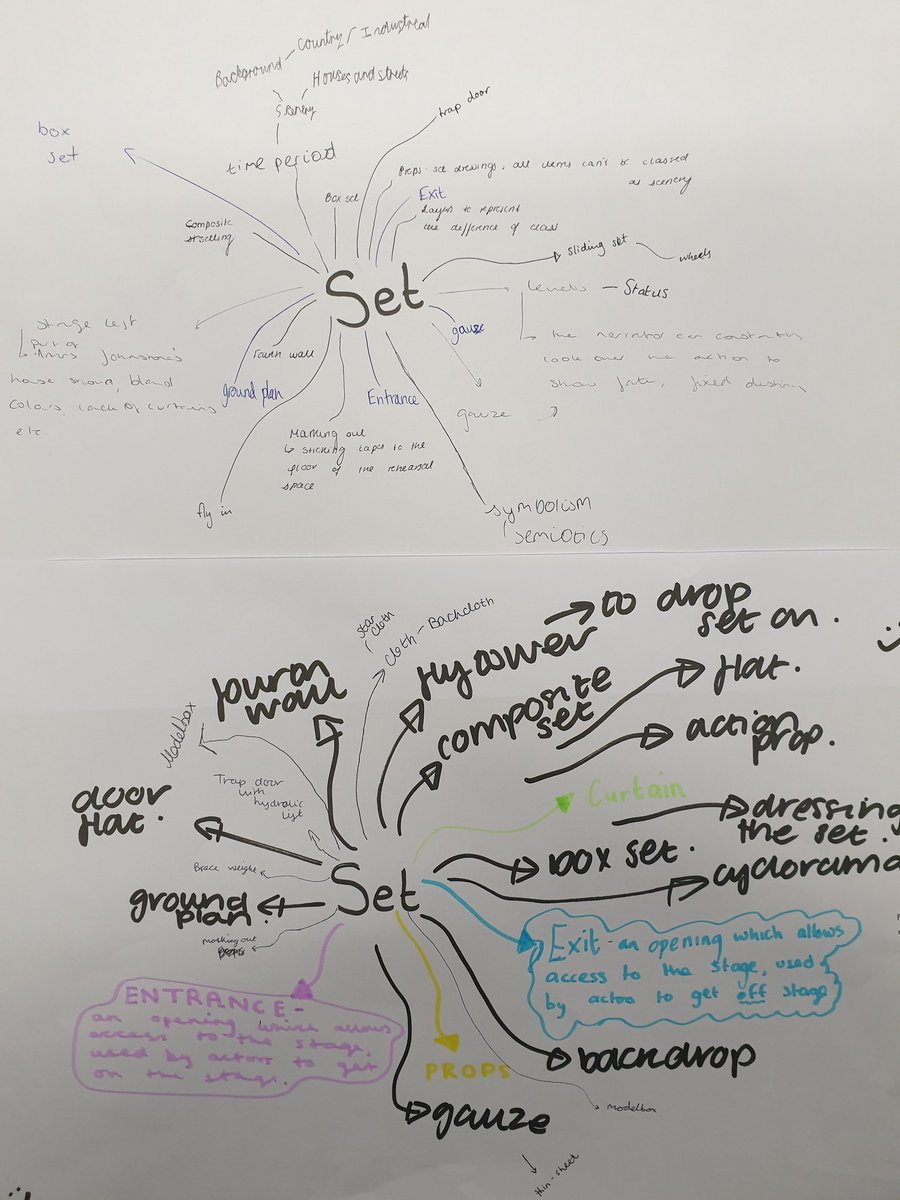 Background - Country / Industreal
Houses and streets
Scenery
time period
trap door
box
set
Box set
Props - set dressings, all items can't be classed
as scenery
Exit
Layers to represent
the difference of class
Composite
sliding set
wheels
Set
levels - Status
the narrator can constantly
look over the action to
show fate, fixed destiny
gauze
gauze
stage left
part of
Mrs Johnstone's
house shown, bland
colours, lack of curtains
etc.
fourth wall
ground plan
Entrance
Marking out
sticking tapes to the
floor of the rehearsal
space
fly in
symbolism
semiotics
star
cloth
Cloth - Backcloth
flytower
to drop
set on.
wall
composite
set
flat.
action
prop.
Modelbox
Trap door
with
hydralic
lift
door
flat.
Curtain
dressing
the set.
box set.
cyclorama
Brace weight
Set
ground
plan.
marking out
Exit - an opening which allows
access to the stage, used
by actors to get off stage
ENTRANCE -
an opening which allows
access to the stage,
used by actors to get
on the stage.
PROPS
backdrop
modelbox
gauze
thin-sheet